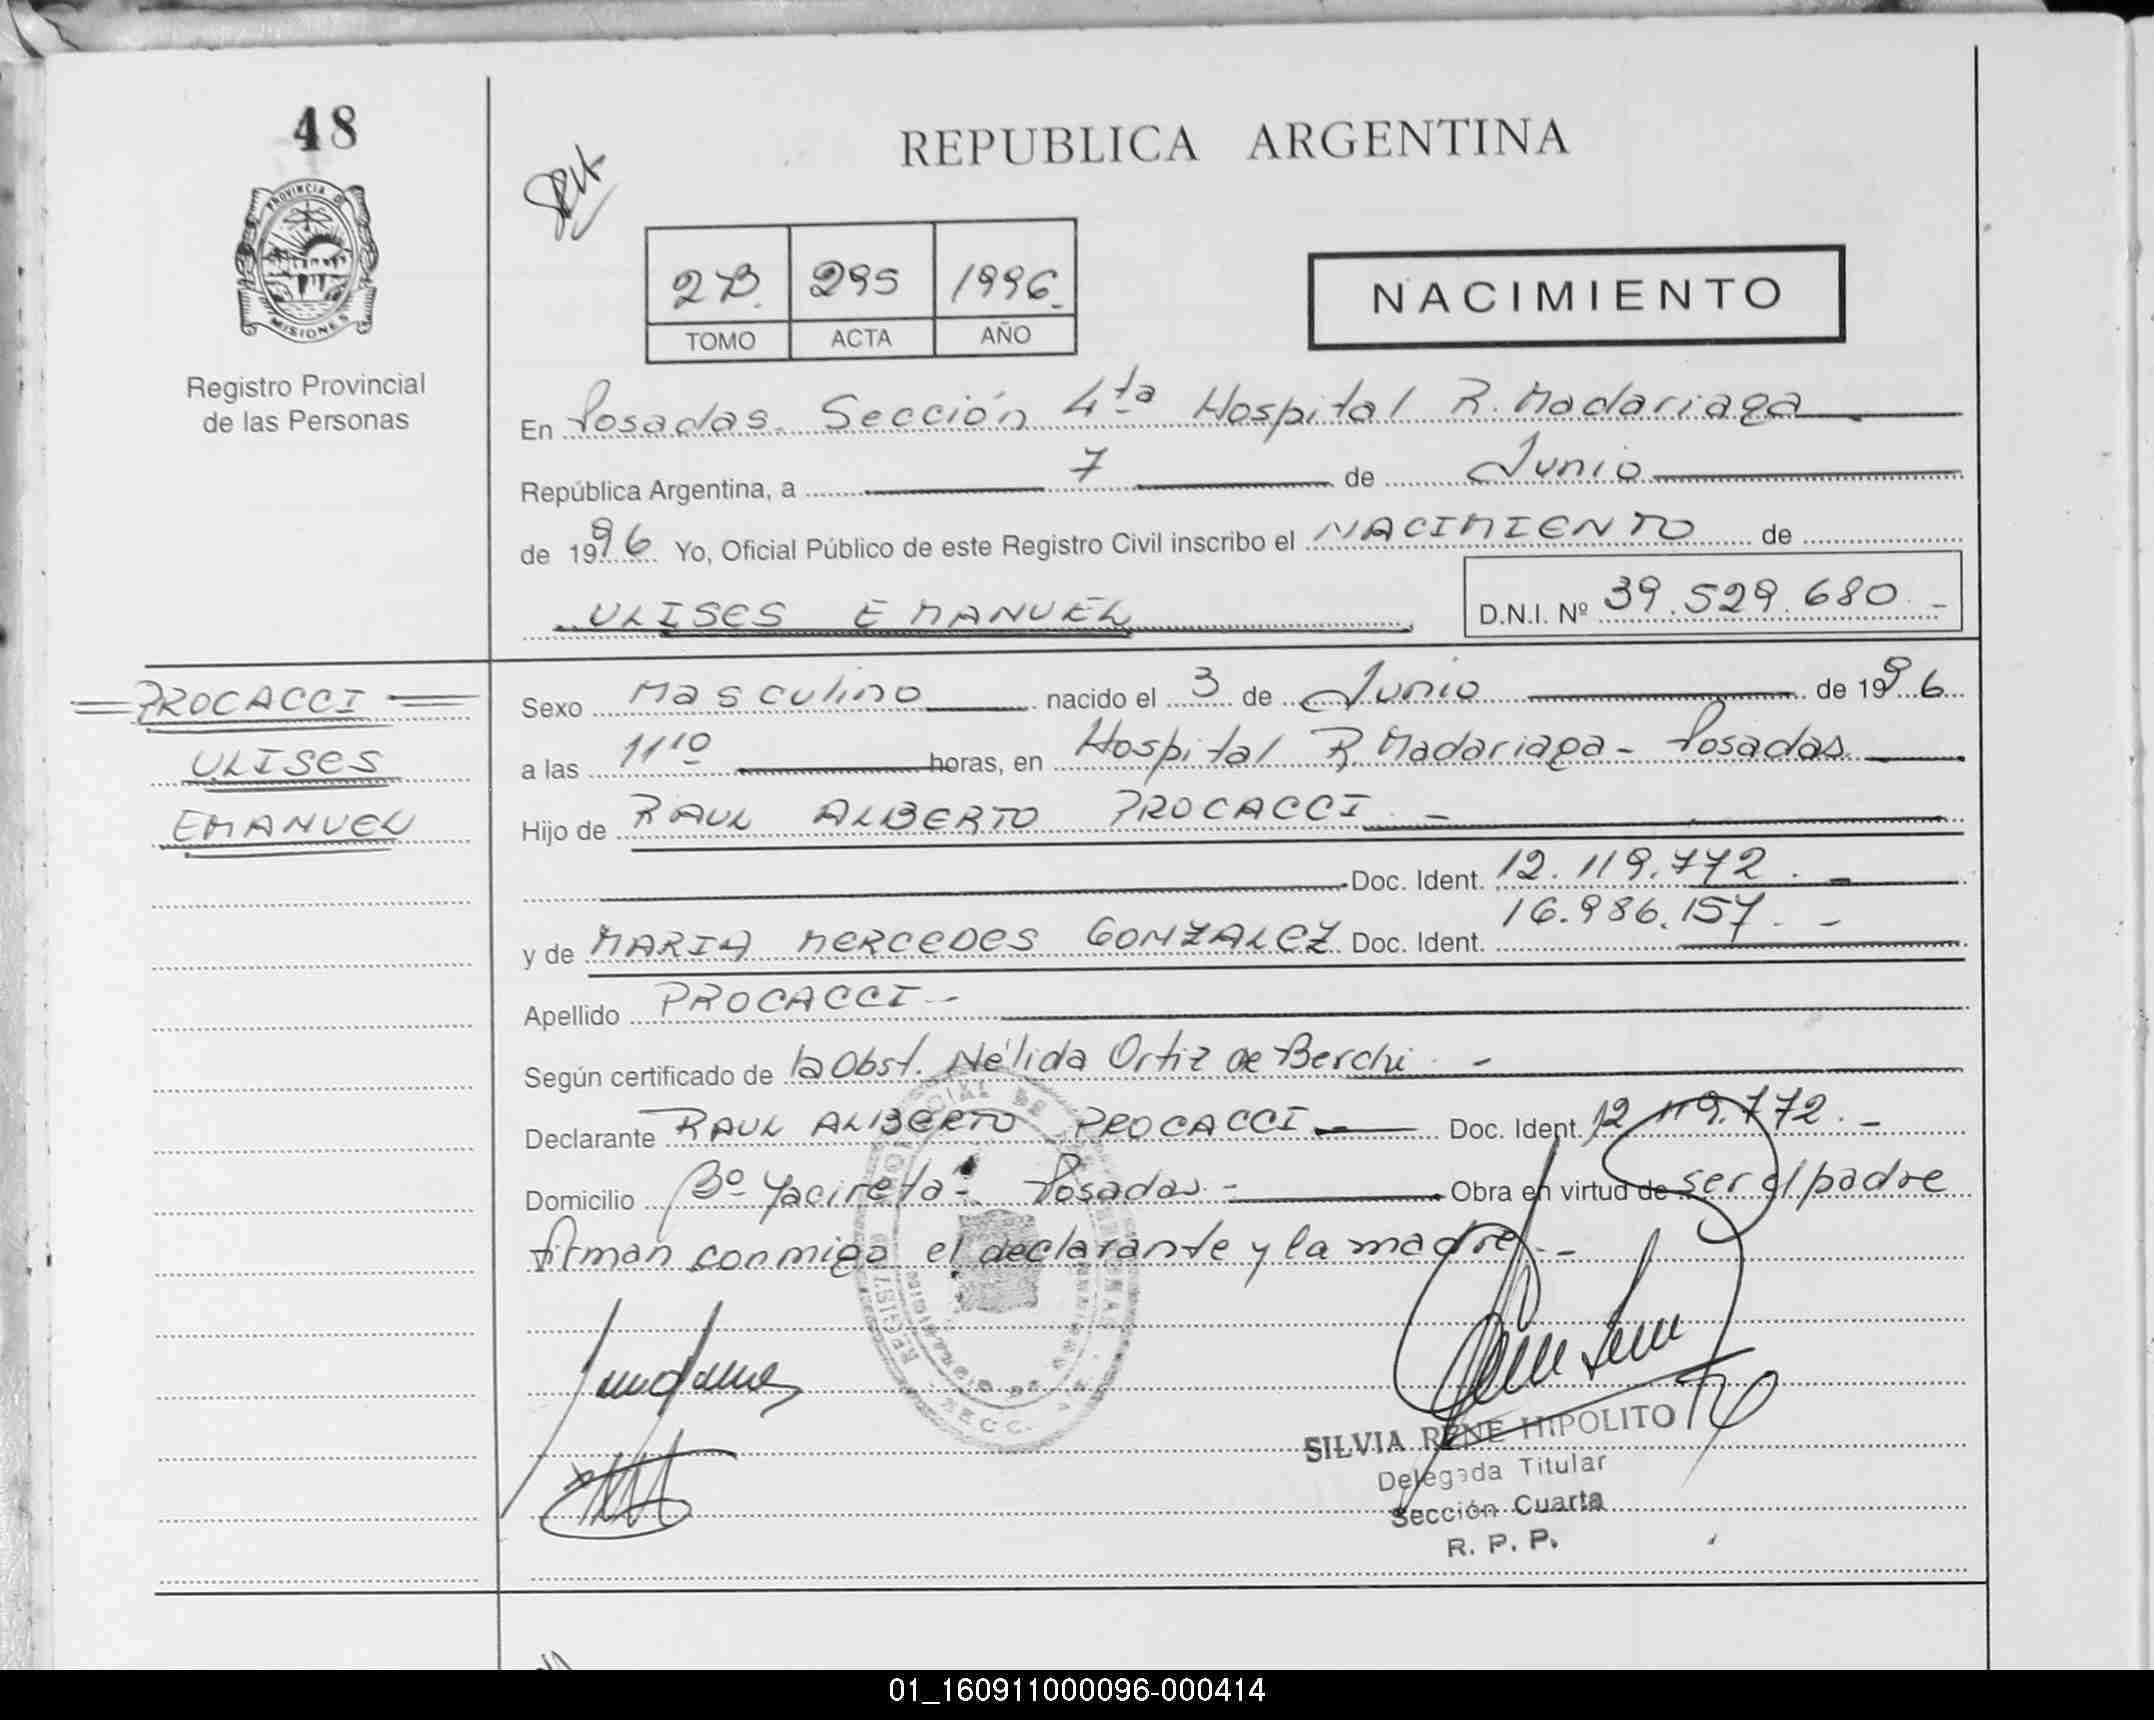 48
REPUBLICA ARGENTINA
PROVINCIA DE
MISIONES
Registro Provincial
de las Personas
2 B. 295 1996.
TOMO ACTA AÑO
NACIMIENTO
En Posadas. Sección 4ta Hospital R. Madariaga
República Argentina, a 7 de Junio
de 1996 Yo, Oficial Público de este Registro Civil inscribo el NACIMIENTO de
ULISES EMANUEL D.N.I. Nº 39.529.680.-
PROCACCI
ULISES
EMANUEL
Sexo Masculino nacido el 3 de Junio de 1996
a las 11 10 horas, en Hospital R. Madariaga - Posadas
Hijo de RAUL ALBERTO PROCACCI -
Doc. Ident. 12.119.772.-
y de MARIA MERCEDES GONZALEZ Doc. Ident. 16.986.157.-
Apellido PROCACCI -
Según certificado de la Obst. Nélida Ortiz de Berchi. -
Declarante RAUL ALBERTO PROCACCI Doc. Ident. 12 119.772.-
Domicilio Bº Yacireta - Posadas - Obra en virtud de ser el padre
firman conmigo el declarante y la madre.-
SILVIA RENE HIPOLITO
Delegada Titular
Sección Cuarta
R. P. P.
01_160911000096-000414